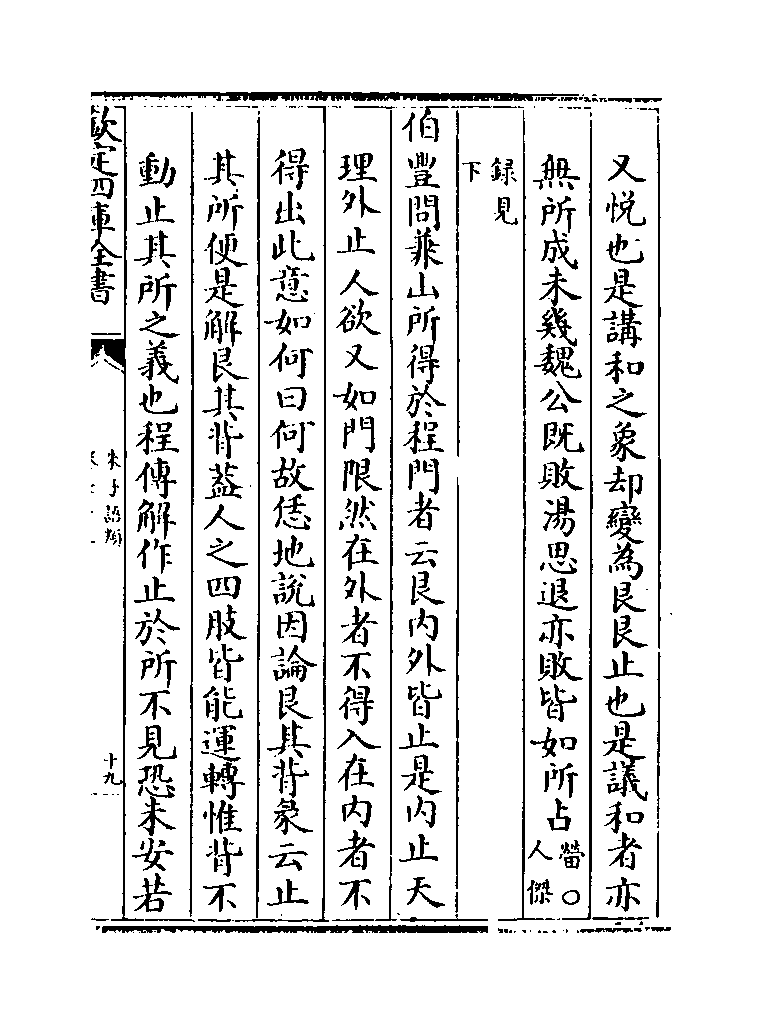 又悦也是講和之象却變為艮艮止也是議和者亦
無所成未幾魏公既敗湯思退亦敗皆如所占㽦○人傑
録見下
伯豐問兼山所得於程門者云艮内外皆止是内止天
理外止人欲又如門限然在外者不得入在内者不
得出此意如何曰何故恁地說因論艮其背彖云止
其所便是解艮其背蓋人之四肢皆能運轉惟背不
動止其所之義也程傳解作止於所不見恐未安若
欽定四庫全書
朱子語類
十九